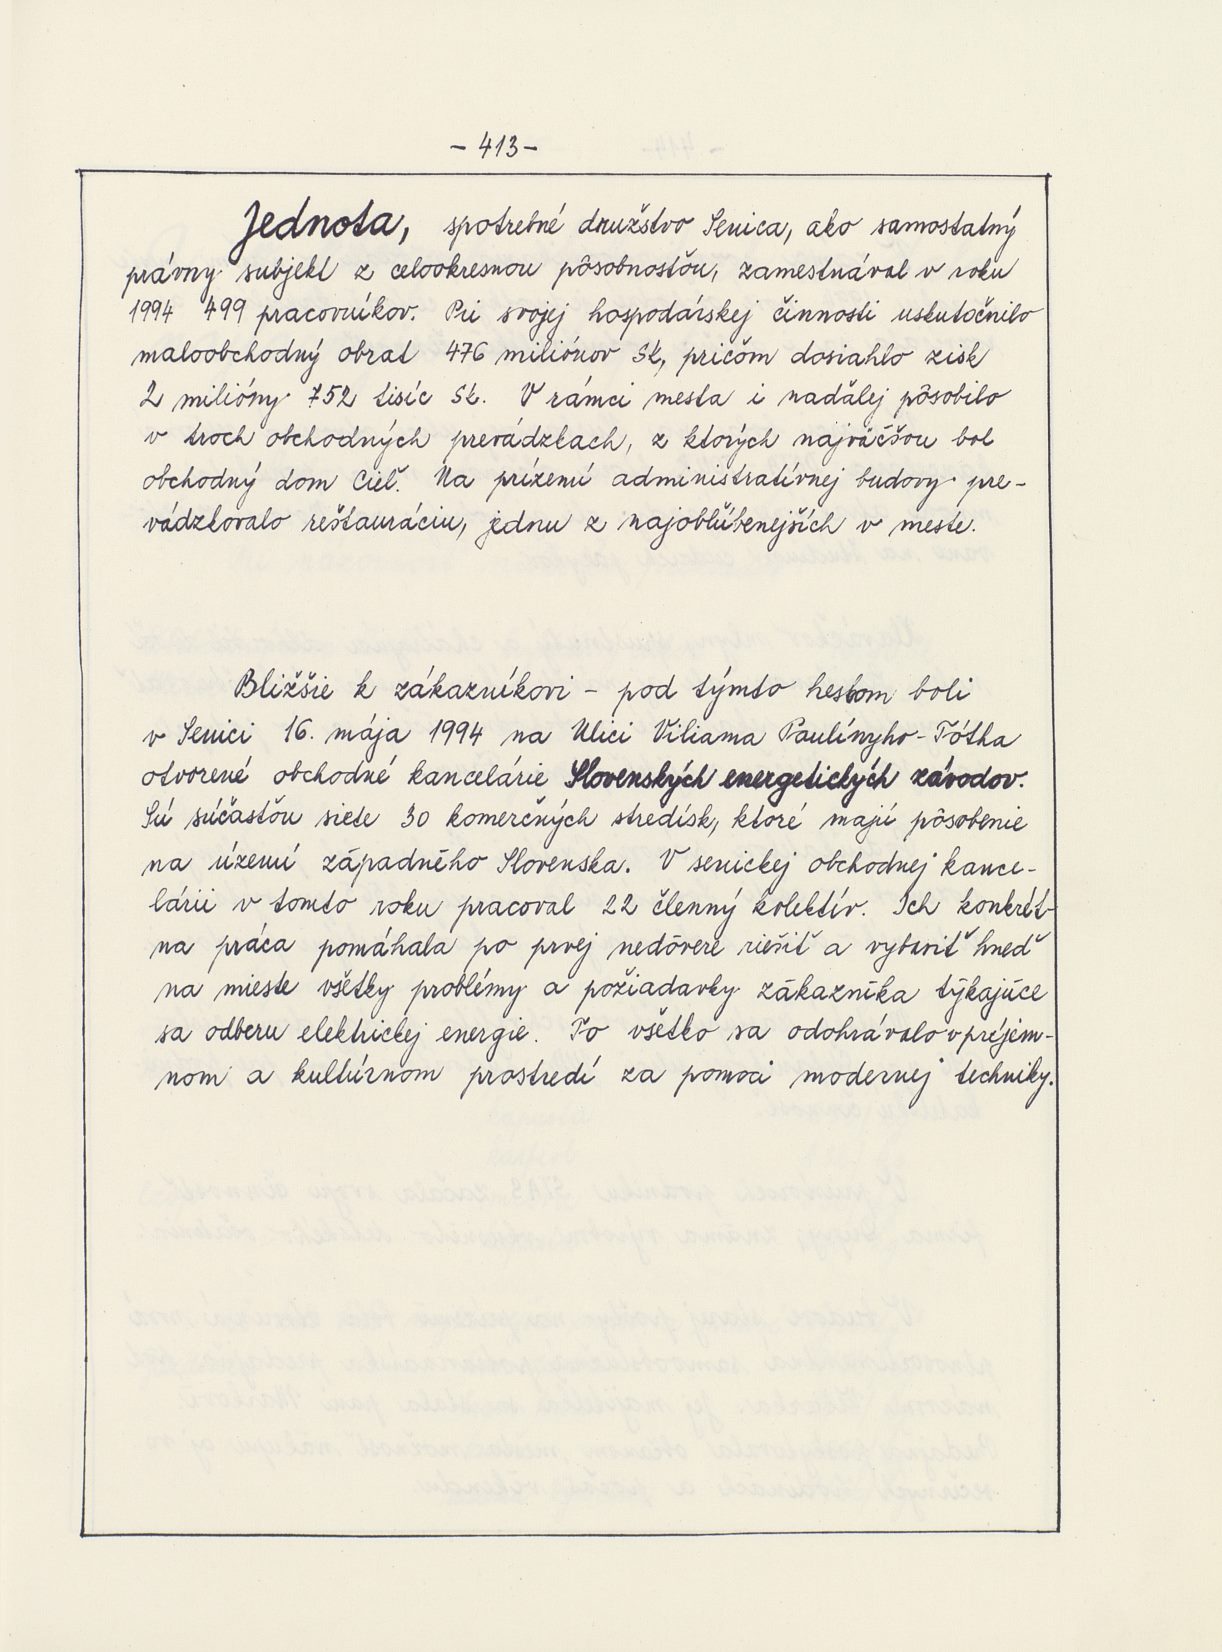 - 413 -
Jednota, spotrebné družstvo Senica, ako samostatný
právny subjekt z celookresnou pôsobnosťou, zamestnával v roku
1994 499 pracovníkov. Pri svojej hospodárskej činnosti uskutočnilo
maloobchodný obrat 476 miliónov Sk, pričom dosiahlo zisk
2 milióny 752 tisíc Sk. V rámci mesta i naďalej pôsobilo
v troch obchodných prevádzkach, z ktorých najväčšou bol
obchodný dom Cieľ. Na prízemí administratívnej budovy pre-
vádzkovalo reštauráciu, jednu z najobľúbenejších v meste.
Bližšie k zákazníkovi - pod týmto heslom boli
v Senici 16. mája 1994 na Ulici Viliama Paulínyho-Tótha
otvorené obchodné kancelárie Slovenských energetických závodov.
Sú súčasťou siete 30 komerčných stredísk, ktoré majú pôsobenie
na území západného Slovenska. V senickej obchodnej kance-
lárii v tomto roku pracoval 22 členný kolektív. Ich konkrét-
na práca pomáhala po prvej nedôvere riešiť a vybaviť hneď
na mieste všetky problémy a požiadavky zákazníka týkajúce
sa odberu elektrickej energie. To všetko sa odohrávalo v príjem-
nom a kultúrnom prostredí za pomoci modernej techniky.